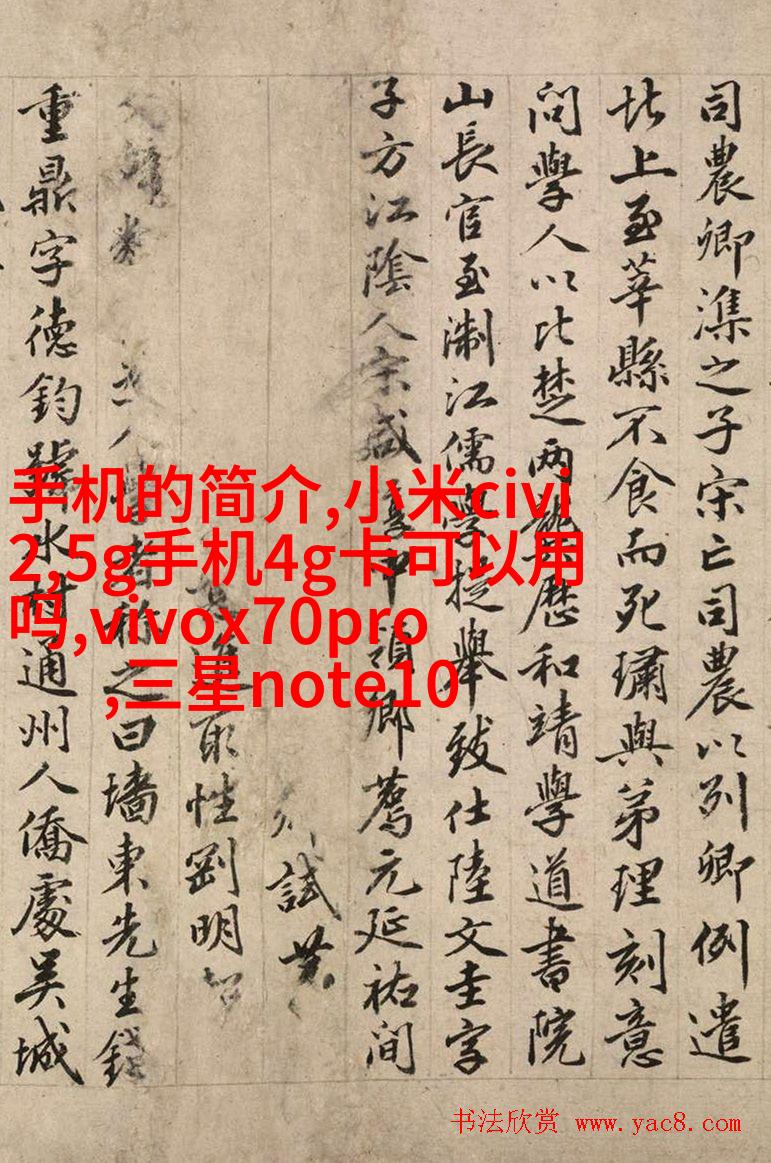 司農卿濮之子宋亡司農以列卿例遣
北上至莘縣不食而死璛與弟理刻意
問學人以比楚两龔歷和靖學道書院
山長官至淛江儒學提舉致仕陸文圭字
子方江陰人宋咸淳甲領鄉薦元延祐间
試
取性劉明
人學者称之曰墻東先生錢
重鼎字德鈞號水村通州人僑處吴城
手机的简介,小米civi
2,5g手机4g卡可以用
吗,vivox70pro
,三星note10
书法欣赏 www.yac8.com